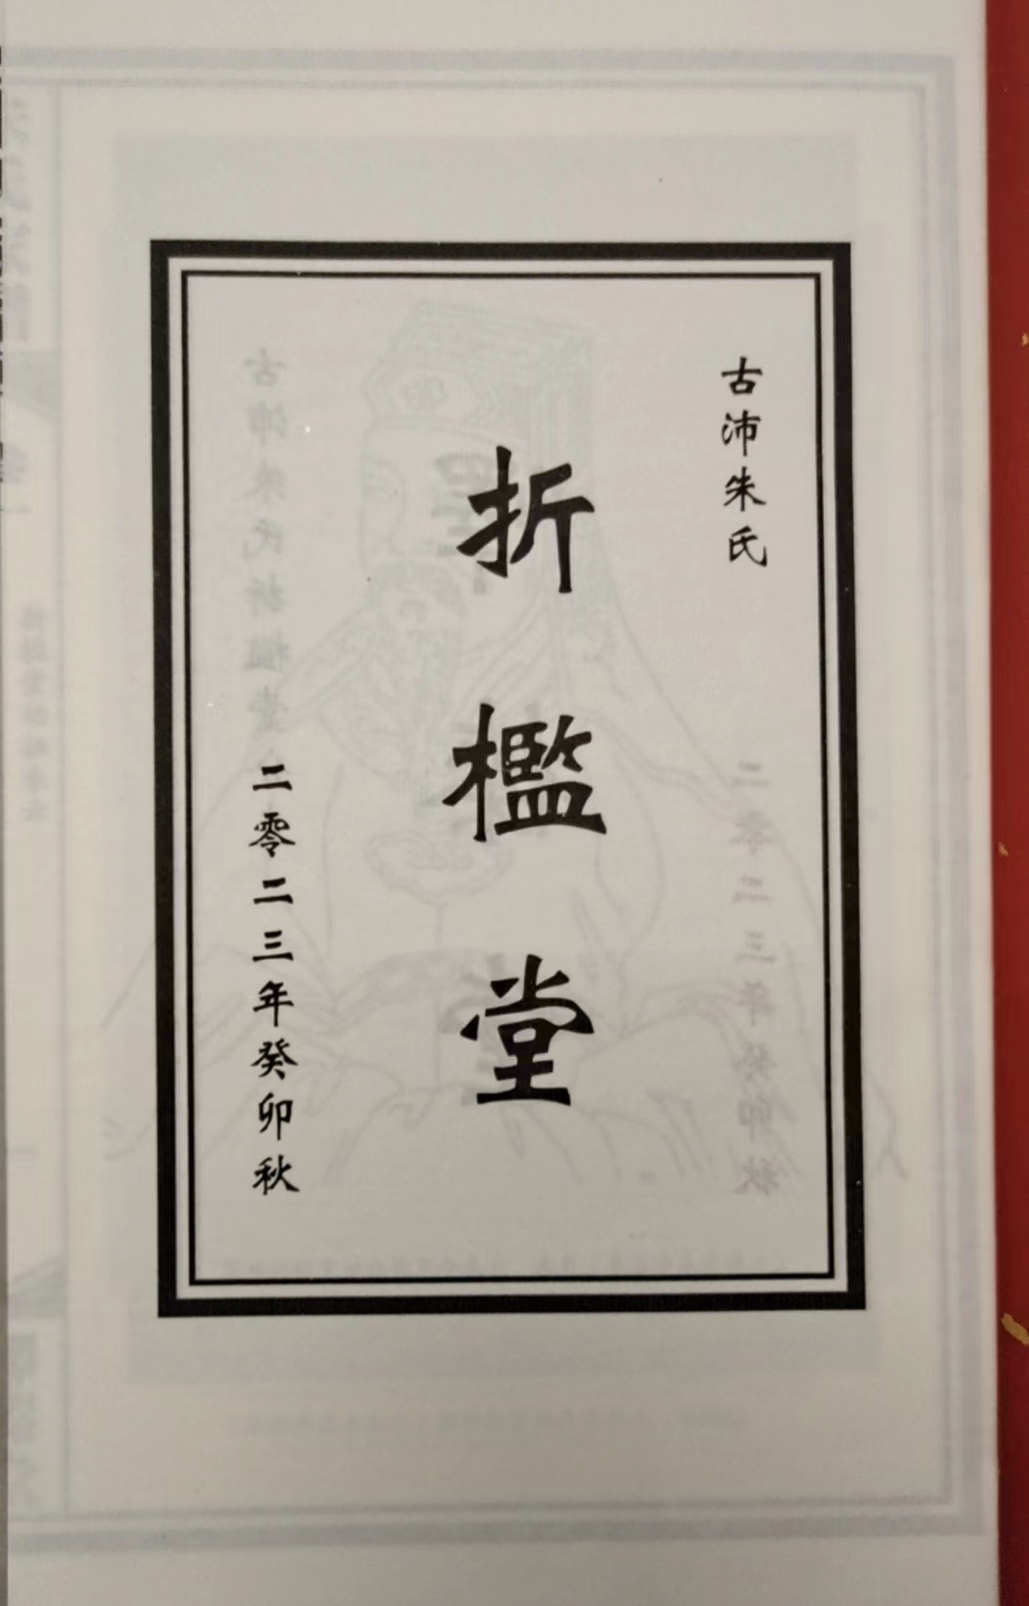 古沛朱氏
折檻堂
二零二三年癸卯秋